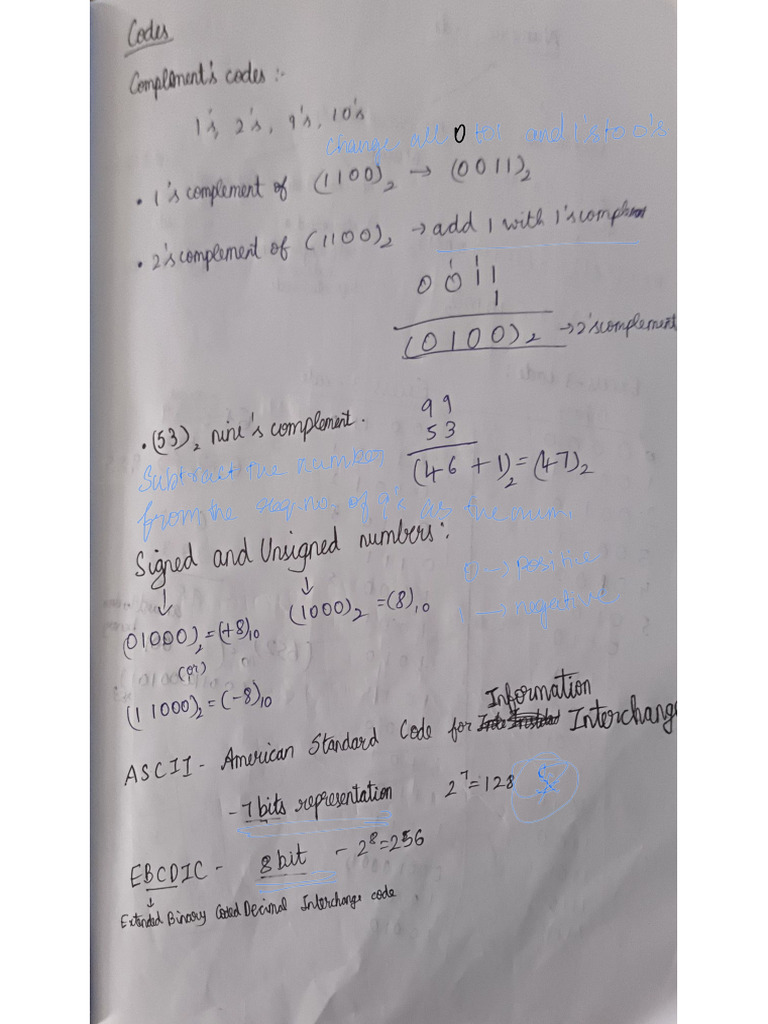 Codes
Complement's codes :-
1's, 2's, 9's, 10's
change all 0 to 1 and 1's to 0's
• 1's complement of (1100)₂ → (0011)₂
• 2's complement of (1100)₂ → add 1 with 1's complement
1 1
0 0 1 1
1
(0100)₂ → 2's complement
9 9
• (53)₂ nine's complement.
5 3
Subtract the number
(46 + 1)₂ = (47)₂
from the seq no. of 9's as the num.
Signed and Unsigned numbers:
0 → positive
↓ ↓
(1000)₂ = (8)₁₀
1 → negative
(01000)₂ = (+8)₁₀
(or)
(11000)₂ = (-8)₁₀
Information
ASCII - American Standard Code for Interchange
- 7 bits representation 2⁷ = 128
EBCDIC - 8 bit - 2⁸ = 256
↓
Extended Binary Coded Decimal Interchange code